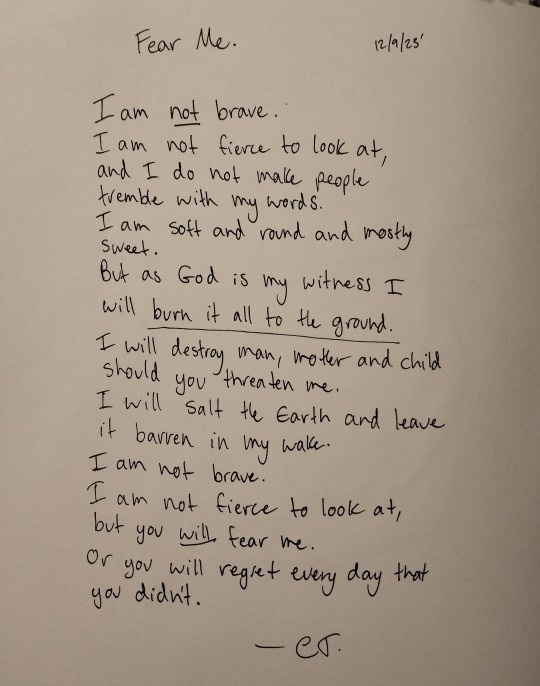 Fear Me.
12/9/25'
I am not brave.
I am not fierce to look at,
and I do not make people
tremble with my words.
I am soft and round and mostly
sweet.
But as God is my witness I
will burn it all to the ground.
I will destroy man, mother and child
should you threaten me.
I will salt the Earth and leave
it barren in my wake.
I am not brave.
I am not fierce to look at,
but you will fear me.
Or you will regret every day that
you didn't.
— CJ.